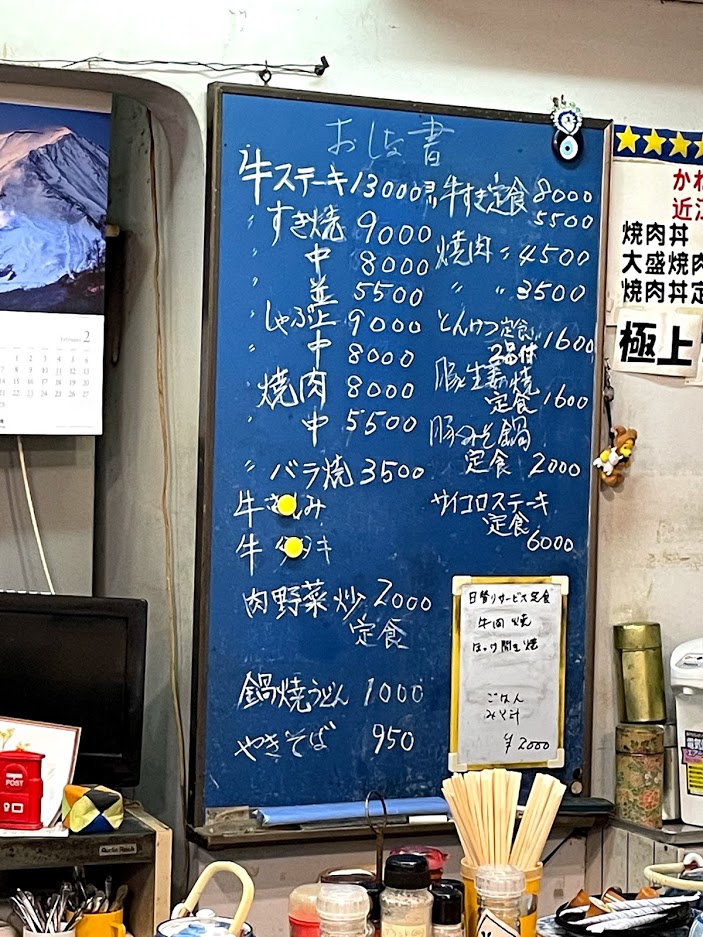 おしな書
牛ステーキ 13000ヨリ
〃 すき焼 9000
〃 中 8000
〃 並 5500
〃 しゃぶ上 9000
〃 中 8000
〃 焼肉 8000
〃 中 5500
〃 バラ焼 3500
牛さしみ
牛
肉野菜炒 2000
定食
鍋焼うどん 1000
やきそば 950
牛すき定食 8000
5500
焼肉 〃 4500
〃 〃 3500
とんかつ定食 1600
2品付
豚生姜焼
定食 1600
豚みそ鍋
定食 2000
サイコロステーキ
定食
6000
日替りサービス定食
牛肉 焼
ほっけ開き焼
ごはん
みそ汁
¥2000
近江
焼肉丼
大盛焼肉
焼肉丼定
極上
2
POST